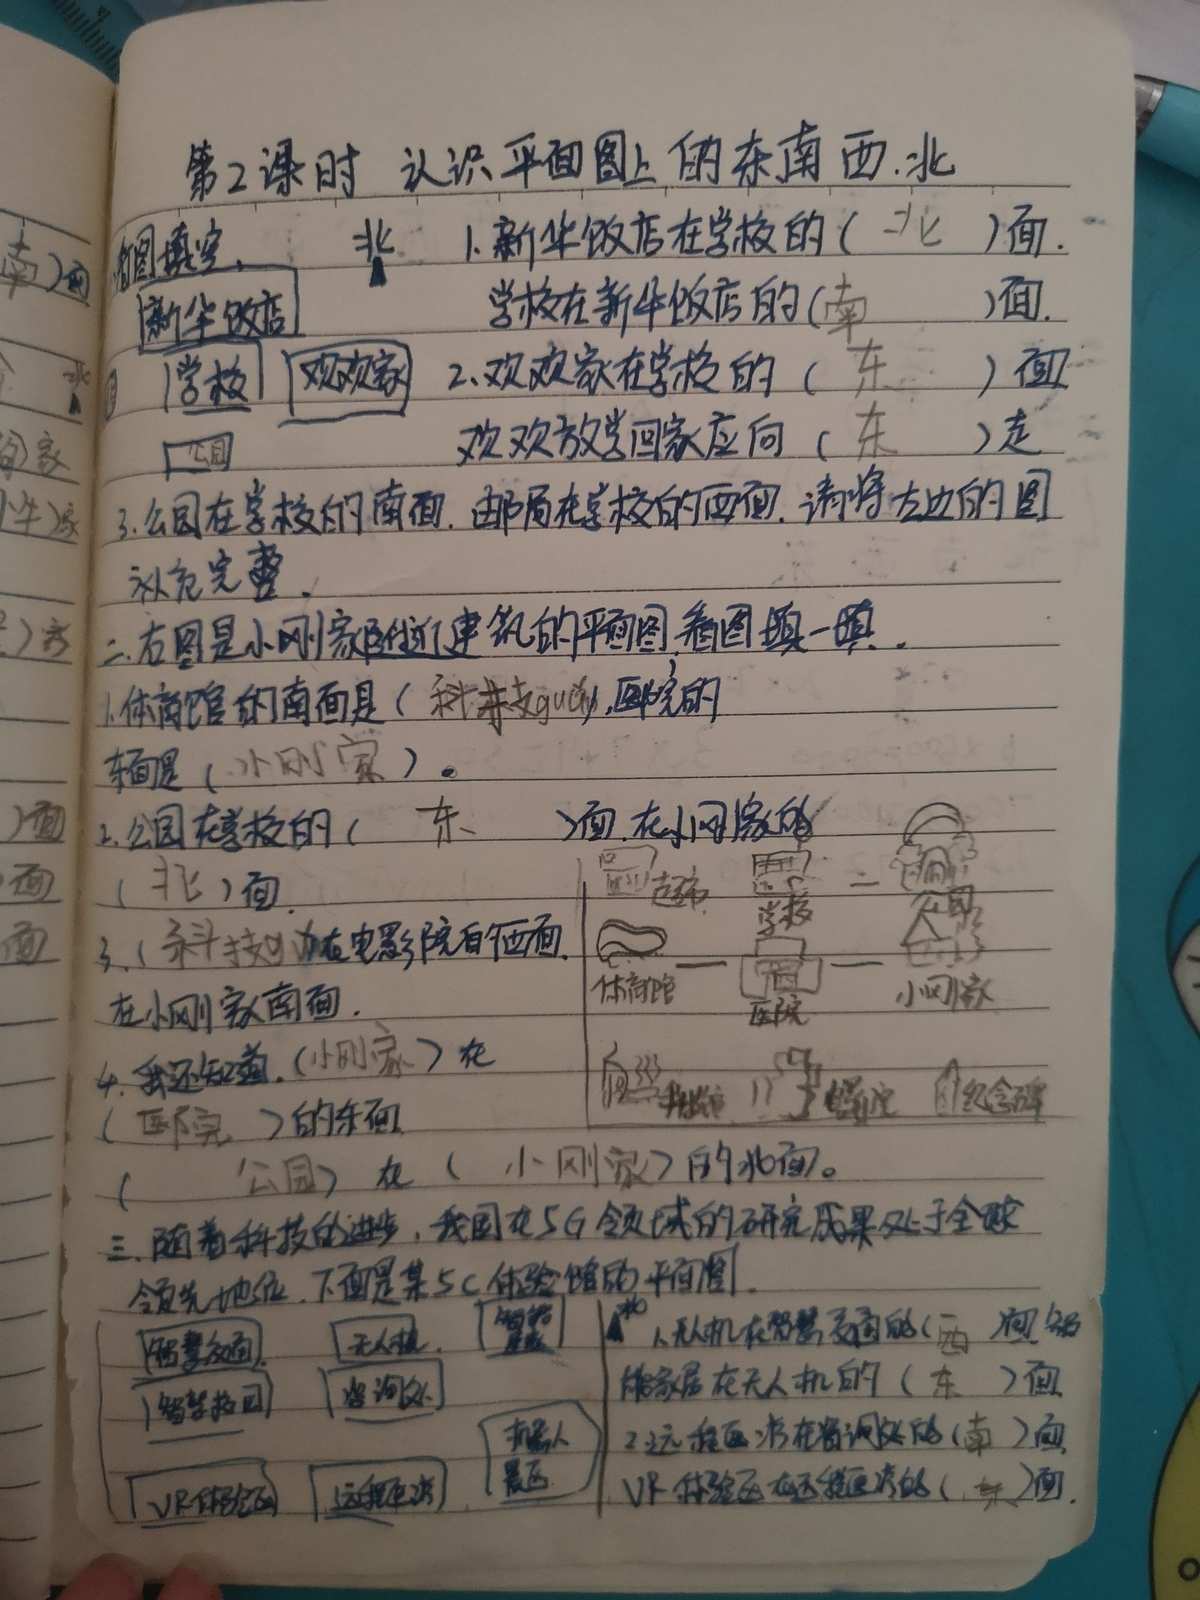 第2课时 认识平面图上的东南西北
看图填空. 北 1.新华饭店在学校的( 北 )面.
新华饭店 学校在新华饭店的(南 )面.
学校 欢欢家 2.欢欢家在学校的( 东 )面
公园 欢欢放学回家应向( 东 )走
3.公园在学校的南面.邮局在学校的西面.请将左边的图
补充完整.
二.右图是小刚家附近建筑的平面图,看图填一填.
1.体育馆的南面是(科技guan),医院的
东面是(小刚家)。
2.公园在学校的( 东 )面.在小刚家的
(北)面.
超市 学校 公园
3.(科技 )在电影院的西面.
在小刚家南面.
体育馆 医院 小刚家
4.我还知道,(小刚家)在
(医院)的东面
电影院 纪念碑
( 公园)在( 小刚家)的北面。
三.随着科技的进步,我国在5G领域的研究成果处于全球
领先地位.下面是某5G体验馆的平面图.
智慧交通 无人机 北 1.无人机在智慧交通的(西)面,智
智慧校园 咨询处 能家居在无人机的(东)面
机器人 展区 2.远程医疗在咨询处的(南)面
VR体验区 远程医疗 VR体验区在远程医疗的(东)面.